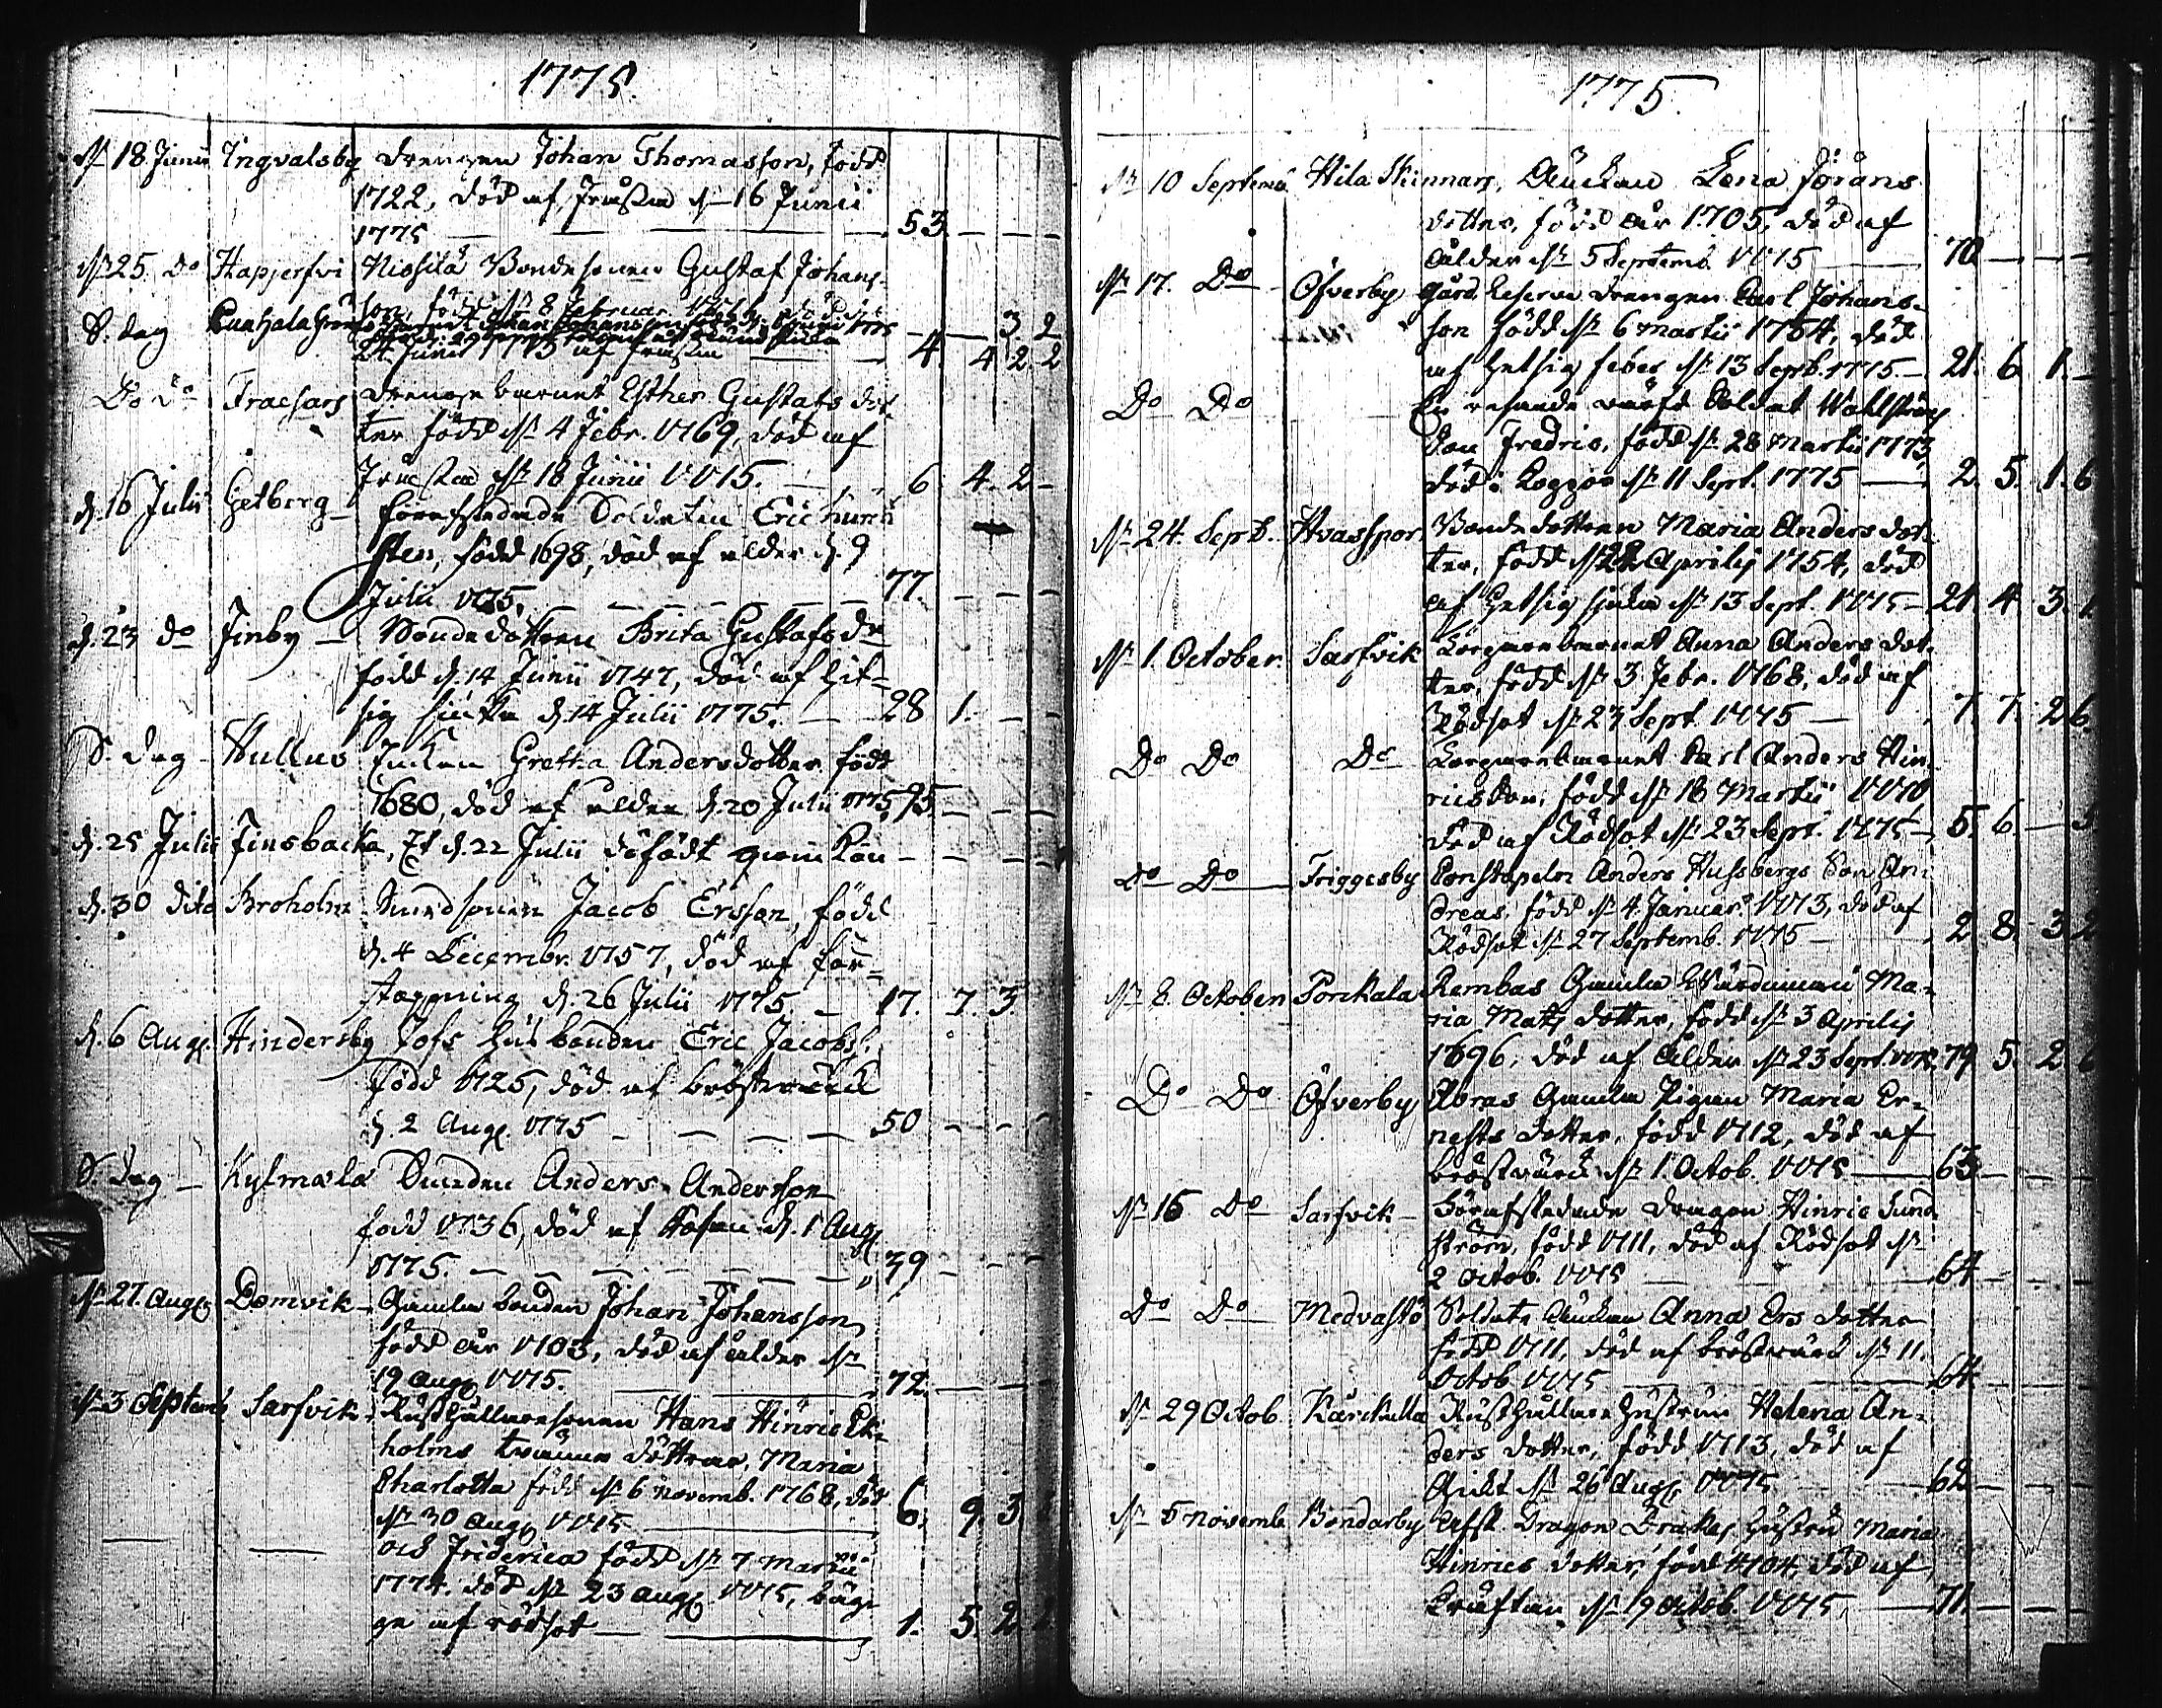 1775.
d. 18 Junii Ingvalsby Drengen Johan Thomasson, född
1722, död af d. 16 Junii
1775 53. — — —
d. 25. Do Kapperfvi Bondesonen Gustaf Johans-
son, född d. 8 Februar. död d.
D. dag 3. 2
24 Junii 1775 af 4. 4. 2. 2
Do Do Fraesars barnet Esther Gustafs dot
ter född d. 4 Febr. 1769, död af
d. 18 Junii 1775. — 6 4. 2 —
d. 16 Julii Getberg — Soldaten Eric
sten, född 1698, död af ålder d. 9
Julii 1775. 77. — — —
d. 23 do Finby — Bondedottren Brita Gustafsdr
född d. 14 Junii 1747, död af hit-
sig d. 14 Julii 1775. — 28 1. — —
D. dag — Hullus Enkan Gretha Andersdotter född
1680, död af ålder d. 20 Julii 1775, 95. — — —
d. 25 Julii Finsbacka, Et d. 22 Julii dödfödt qvin Kön — — — —
d. 30 dito Broholm Jacob Ersson, född
d. 4 Decembr. 1757, död af för-
stoppning d. 26 Julii 1775 — 17. 7. 3.
d. 6 Aug. Hindersby Jofs husbonden Eric Jacobs.
född 1725, död af bröstvärck
d. 2 Aug. 1775 — — — — 50 — — —
D. dag — Kylmala Anders Andersson
född 1736, död af d. 1 Aug.
1775. — — — — 39 — — —
d. 27. Aug. Domvik — Gamla bonden Johan Johansson
född år 1703, död af ålder d.
19 Aug. 1775. 72. — — —
d. 3 Septemb Sarfvik — Rusthållaresonen Hans Hinric Ek-
holms tvänne döttrar, Maria
Charlotta född d. 6 Novemb. 1768, död
d. 30 Aug. 1775 — 6. 9. 3
— — och Friderica född d. 7 Martii
1774. död d. 23 Aug. 1775, bäg-
ge af rödsot — 1. 5. 2
1775
d. 10 Septemb Hila Skinnars, Änckan Lena Jörans
dotter, född år 1705, död af
ålder d. 5 Septemb. 1775 — 70 — — —
d. 17. Do — Öfverby Gård. Reserve drengen Carl Johans-
son född d. 6 Martii 1754, död
af hetsig feber d. 13 Septb. 1775 — 21. 6. 1. —
Do Do — En resande Soldat Wahlströms
Son Fredric, född d. 28 Martii 1773,
död i Koppor d. 11 Sept. 1775 — 2. 5. 1. 6
d. 24. Septb. Hvasspor Bonde dottren Maria Anders dot
ter, född d. 22 Aprilis 1754, död
af hetsig sjuka d. 13 Sept. 1775 — 21. 4. 3. 1
d. 1. October. Sarfvik Torparebarnet Anna Anders dot
ter, född d. 3 Febr. 1768, död af
Rödsot d. 23 Sept. 1775 — 7. 7. 2. 6.
Do Do Do Torparebarnet Karl Anders Hin
ricsson, född d. 18 Martii 1770,
död af Rödsot d. 23 Sept. 1775 — 5. 6. — 5
Do Do — Friggesby Constapeln Anders Hussbergs Son An
dreas, född d. 4. Januar. 1773, död af
Rödsot d. 27 Septemb. 1775 — 2. 8. 3. 2
d. 8. October Porckala Rembas Gamla Värdinna Ma-
ria Mats dotter, född d. 3 Aprilis
1696, död af Ålder d. 23 Sept. 1775. 79 5. 2 6
Do Do Öfverby Abras Gamla Pigan Maria Er-
nests dotter, född 1712, död af
bröstvärck d. 1. Octob. 1775 — 63 — — —
d. 15 Do Sarfvik — Förafskedade Dragon Hinric Sund
ström, född 1711, död af Rödsot d.
2 Octob. 1775 — 64 — — —
Do Do — Medvastö Soldats Änckan Anna Ers dotter
född 1711, död af bröstvärck d. 11.
Octob 1775 — 64. — — —
d. 29 Octob. Karckulla Rusthållare hustrun Helena An-
ders dotter, född 1713, död af
Gickt d. 26 Aug. 1775 — 62 — — —
d. 5 Novemb. Bondarby Afsk. Dragon Drakes hustru Maria
Hinrics dotter, född 1704, död af
Kräftan d. 19 Octob. 1775, — 71. — — —